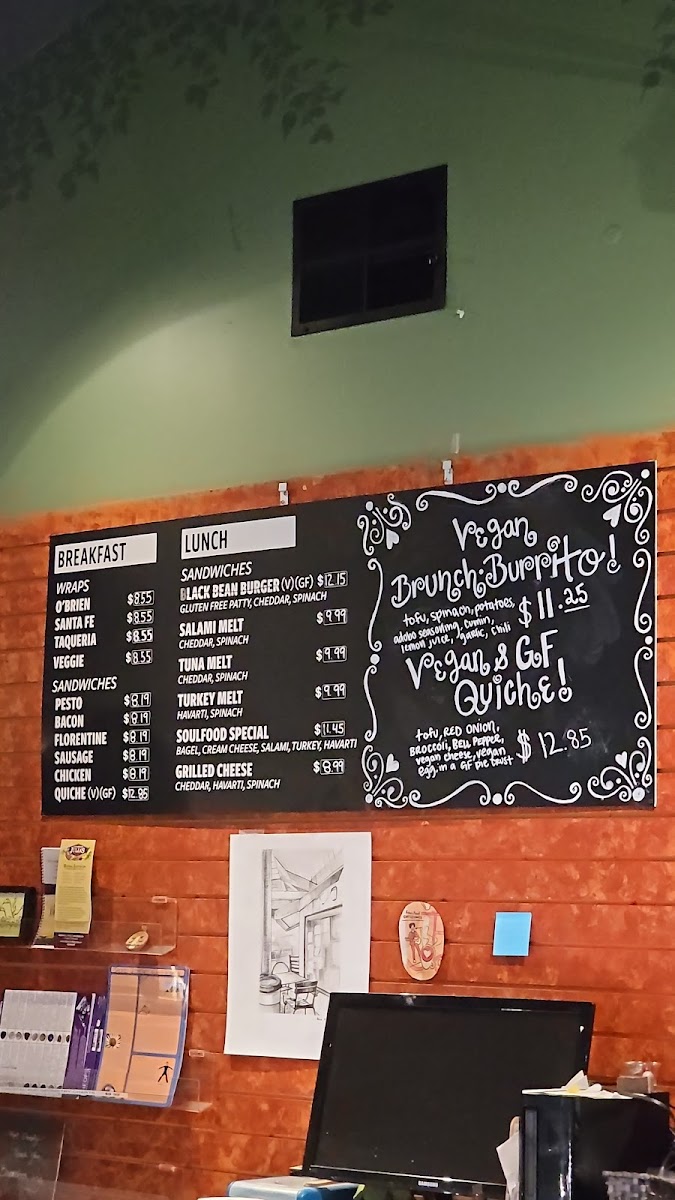 BREAKFAST
WRAPS
O'BRIEN $8.55
SANTA FE $8.55
TAQUERIA $8.55
VEGGIE $8.55
SANDWICHES
PESTO $8.19
BACON $8.19
FLORENTINE $8.19
SAUSAGE $8.19
CHICKEN $8.19
QUICHE (V)(GF) $12.85
LUNCH
SANDWICHES
BLACK BEAN BURGER (V)(GF) $12.15
GLUTEN FREE PATTY, CHEDDAR, SPINACH
SALAMI MELT $9.99
CHEDDAR, SPINACH
TUNA MELT $9.99
CHEDDAR, SPINACH
TURKEY MELT $9.99
HAVARTI, SPINACH
SOULFOOD SPECIAL $11.45
BAGEL, CREAM CHEESE, SALAMI, TURKEY, HAVARTI
GRILLED CHEESE $8.99
CHEDDAR, HAVARTI, SPINACH
Vegan
Brunch Burrito!
tofu, spinach, potatoes,
adobo seasoning, cumin,
lemon juice, garlic, chili
$11.25
Vegan & GF
Quiche!
tofu, RED ONION,
BROCCOLI, BELL PEPPER,
vegan cheese, vegan
egg, in a GF pie crust
$12.85
SAMSUNG